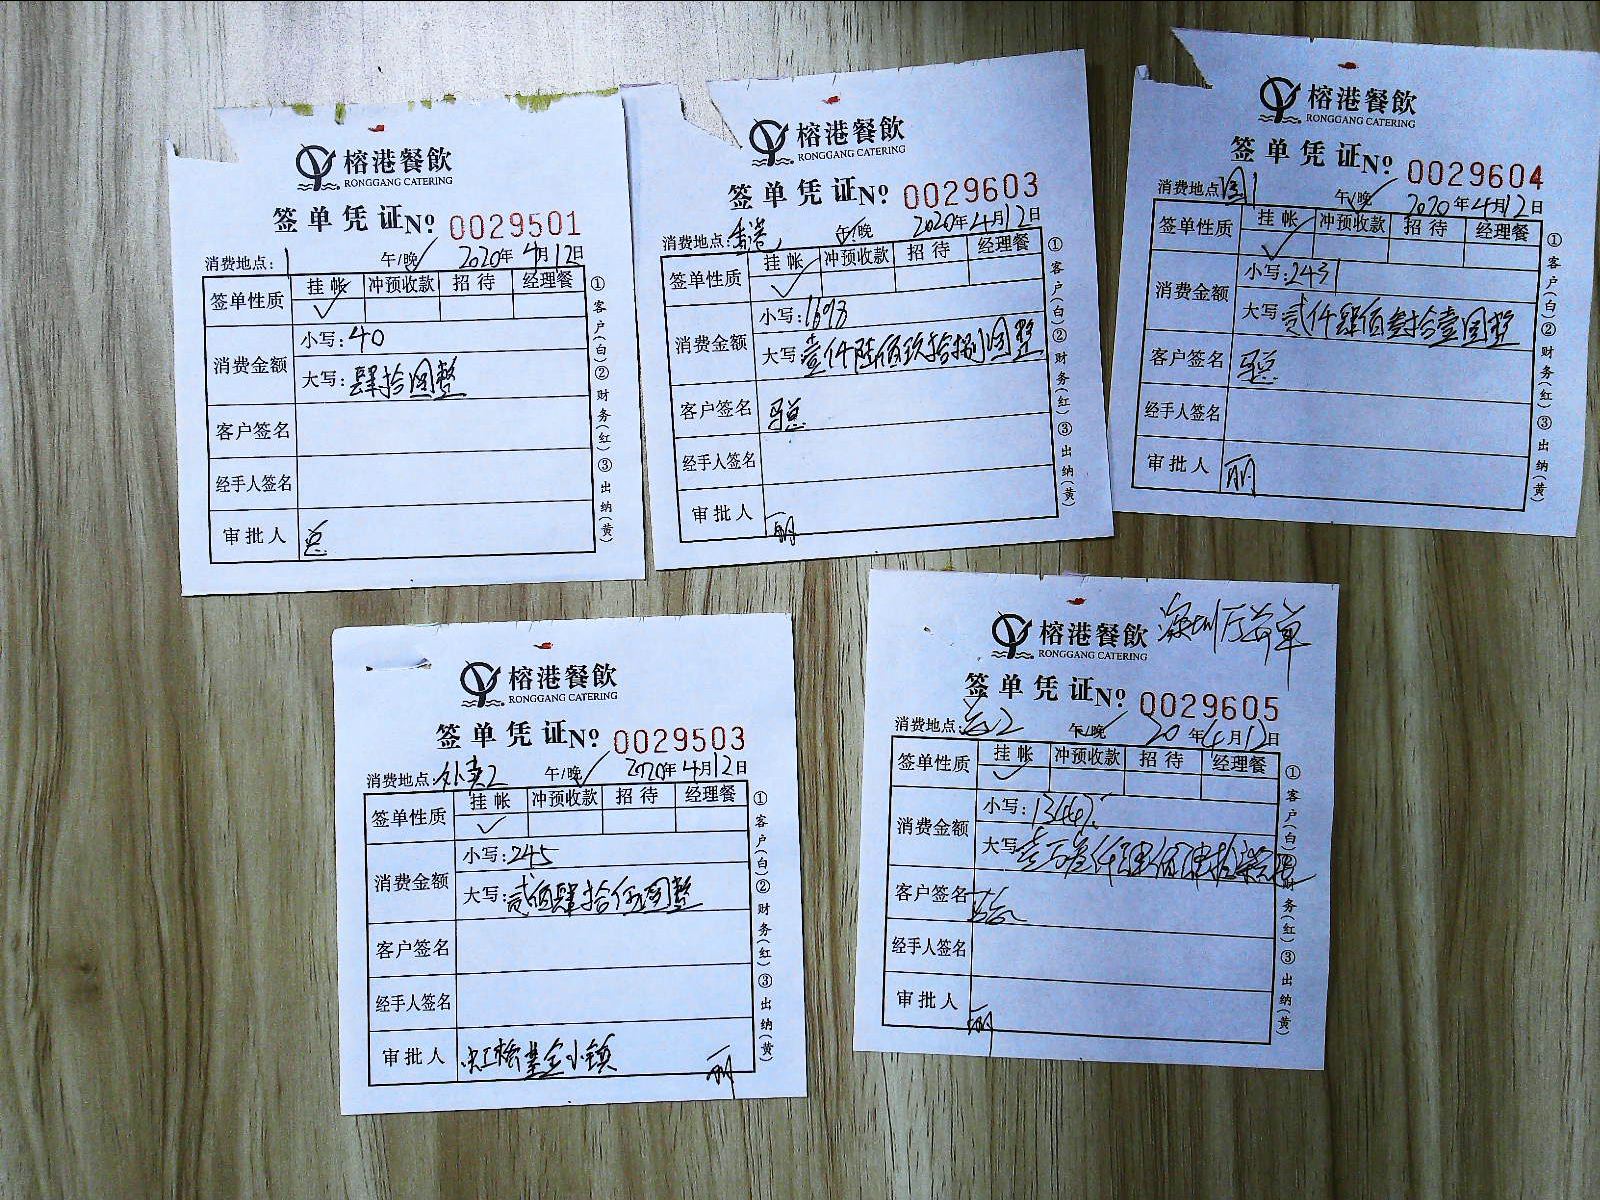 榕港餐飲
RONGGANG CATERING
签单凭证 № 0029501
消费地点: 1 午/晚 2020年4月12日
签单性质 挂帐 冲预收款 招待 经理餐
消费金额 小写: 40
大写: 肆拾圆整
客户签名
经手人签名
审批人
①客户(白)②财务(红)③出纳(黄)
榕港餐飲
RONGGANG CATERING
签单凭证 № 0029603
消费地点: 香港 午/晚 2020年4月12日
签单性质 挂帐 冲预收款 招待 经理餐
消费金额 小写: 1698
大写 壹仟陆佰玖拾捌圆整
客户签名
经手人签名
审批人 丽
①客户(白)②财务(红)③出纳(黄)
榕港餐飲
RONGGANG CATERING
签单凭证 № 0029604
消费地点 午/晚 2020年4月12日
签单性质 挂帐 冲预收款 招待 经理餐
消费金额 小写: 2431
大写 贰仟肆佰叁拾壹圆整
客户签名
经手人签名
审批人 丽
①客户(白)②财务(红)③出纳(黄)
榕港餐飲
RONGGANG CATERING
签单凭证 № 0029503
消费地点: 外卖2 午/晚 2020年4月12日
签单性质 挂帐 冲预收款 招待 经理餐
消费金额 小写: 245
大写: 贰佰肆拾伍圆整
客户签名
经手人签名
审批人 虹桥基金小镇 丽
①客户(白)②财务(红)③出纳(黄)
榕港餐飲
RONGGANG CATERING
签单凭证 № 0029605
消费地点: 午/晚 20年4月12日
签单性质 挂帐 冲预收款 招待 经理餐
消费金额 小写: 13447
大写 壹万叁仟肆佰肆拾柒圆
客户签名
经手人签名
审批人 丽
①客户(白)②财务(红)③出纳(黄)